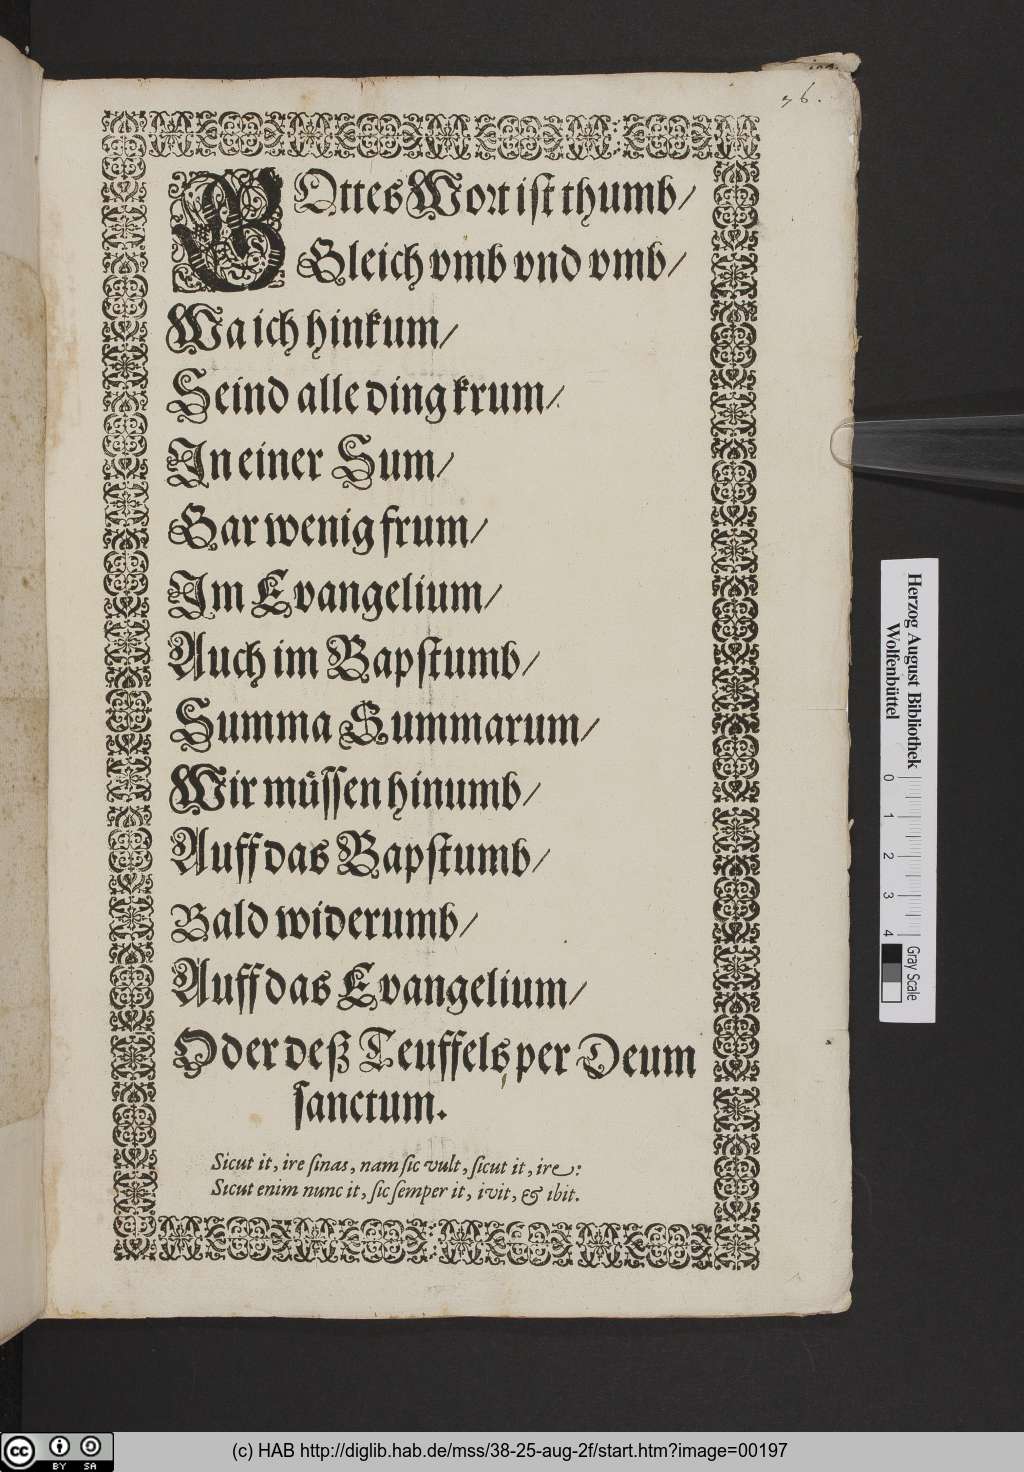 76.
GOttes Wort ist thumb/
Gleich vmb vnd vmb/
Wa ich hinkum/
Seind alle ding krum/
In einer Sum/
Gar wenig frum/
Im Evangelium/
Auch im Bapstumb/
Summa Summarum/
Wir müssen hinumb/
Auff das Bapstumb/
Bald widerumb/
Auff das Evangelium/
Oder deß Teuffels per Deum
sanctum.
Sicut it, ire sinas, nam sic vult, sicut it, ire:
Sicut enim nunc it, sic semper it, ivit, & ibit.
Herzog August Bibliothek
Wolfenbüttel
0 1 2 3 4
Gray Scale
cc BY SA
(c) HAB http://diglib.hab.de/mss/38-25-aug-2f/start.htm?image=00197